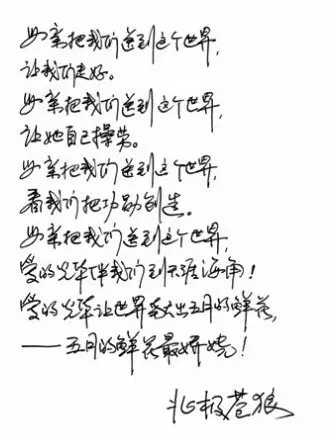 母亲把我们送到这个世界,
让我们走好。
母亲把我们送到这个世界,
让她自己操劳。
母亲把我们送到这个世界,
看我们把功勋创造。
母亲把我们送到这个世界,
爱的光华伴我们到天涯海角!
爱的光华让世界 出五月的鲜花,
——五月的鲜花最娇娆!
北极苍狼